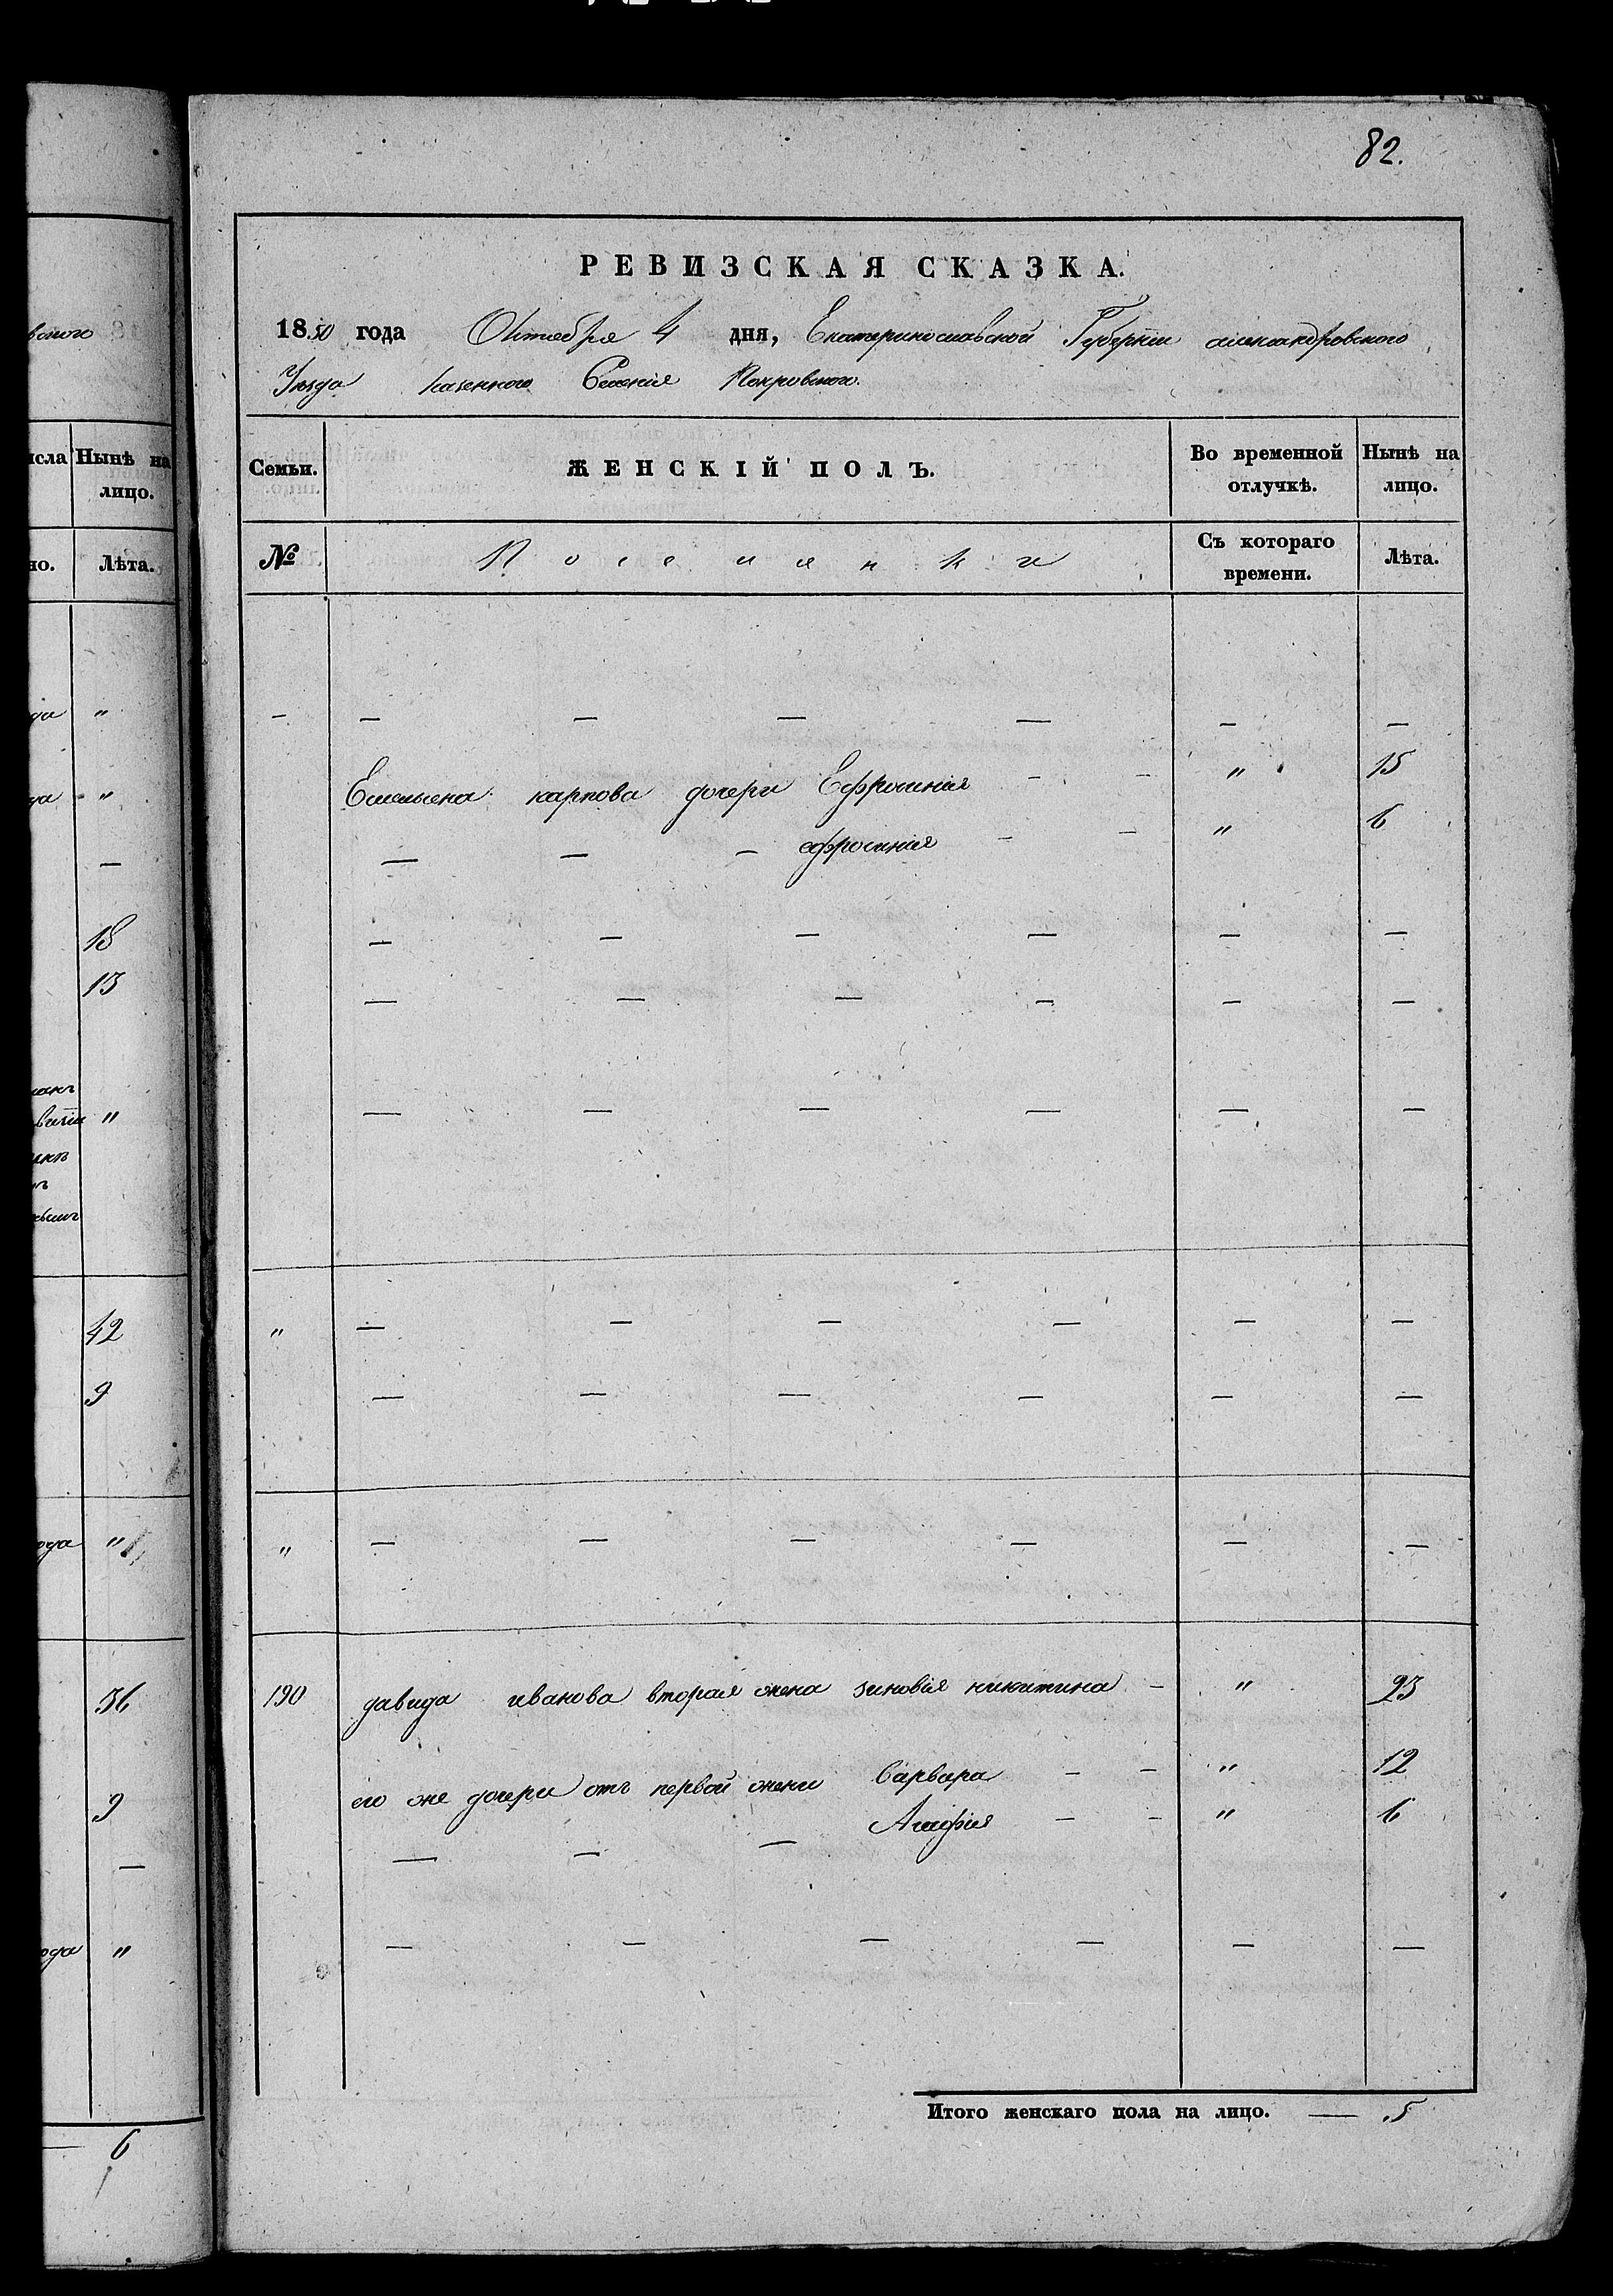 82.
РЕВИЗСКАЯ СКАЗКА.
1850 года Октября 4 дня, Екатеринославской Губернии александровского
Уезда казенного Селения Покровского.
Семьи. ЖЕНСКІЙ ПОЛЪ. Во временной отлучкѣ. Нынѣ на лицо.
№ Поселянки Съ котораго времени. Лѣта.
— — — — — — —
Емельяна карпова дочери Ефросиния - - " 15
— — — ефросиния - - " 6
— — — — — —
— — — — — —
— — — — — —
" — — — — — —
— — — — — —
" — — — — — —
190 давида иванова вторая жена зиновия никитина - " 23
его же дочери отъ первой жены Варвара - - " 12
— — — Агафия - - " 6
— — — — — —
Итого женскаго пола на лицо. — 5
вского
исла Нынѣ на лицо.
но. Лѣта.
"
"
—
18
13
"
42
9
ода "
36
9
—
ода "
— 6